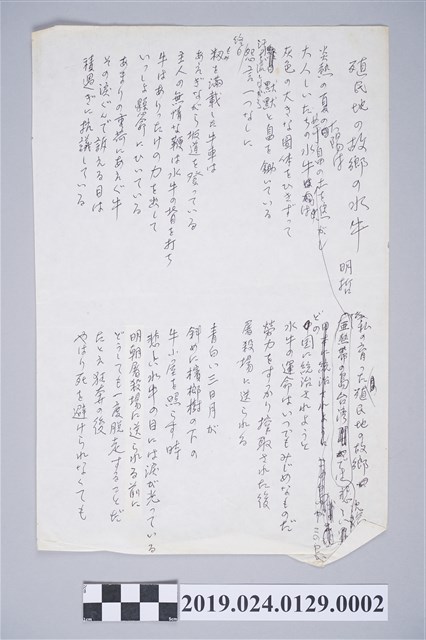 殖民地の故郷の水牛
明哲
炎熱の夏の太陽は
大人しいたちの水牛は
灰色の大きな図体をひきずって
黙黙と畠を鋤いている
怨言一つなしに
籾を満載した牛車は
あえぎながら坂道を登っている
主人の無情な鞭は水牛の背を打ち
牛はありったけの力を出して
いっしょ懸命にひいている
あまりの重荷にあえぐ牛
その涙ぐんで訴える目は
積過ぎに抗議している
私の育った殖民地の故郷
亜熱帯の島台湾
どの国に統治されようと
水牛の運命はいつでもみじめなものだ
労力をすっかり搾取された後
屠殺場に送られる
青白い三日月が
斜めに檳榔樹の下の
牛小屋を照らす時
悲しい水牛の目には涙が光っている
明朝屠殺場に送られる前に
どうしても一度脱走することだ
たとえ狂奔の後
やはり死を避けられなくても
2019.024.0129.0002